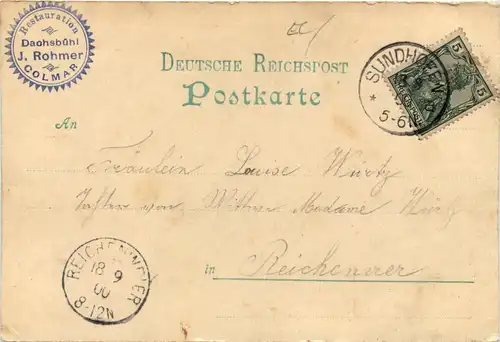 Restauration
Dachsbühl
J. Rohmer
COLMAR
DEUTSCHE REICHSPOST
Postkarte
SUNDHOFEN
5-6
5
5
An
Fräulein Louise Würtz
von Wittwe Madame Würtz
in Reichenweier
REICHENWEIER
18 9
00
8-12N